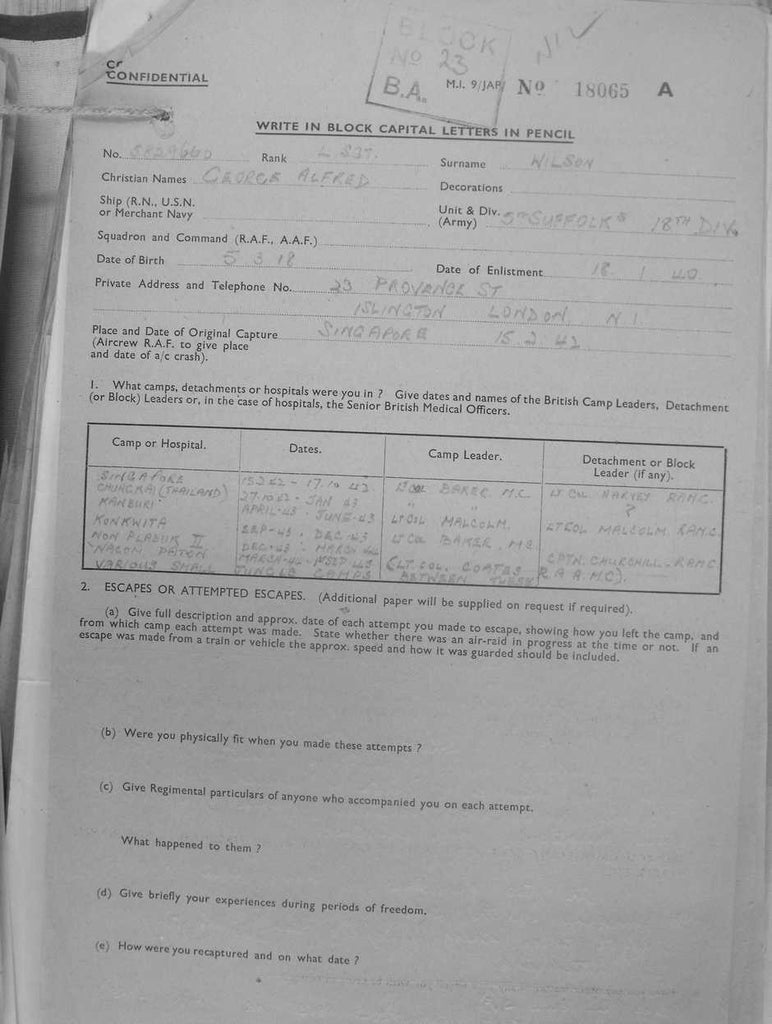 BLOCK
No 23
B.A.
CONFIDENTIAL
M.I. 9/JAP/ No 18065 A
WRITE IN BLOCK CAPITAL LETTERS IN PENCIL
No. Rank L SJT. Surname WILSON
Christian Names GEORGE ALFRED Decorations
Ship (R.N., U.S.N. or Merchant Navy
Unit & Div. (Army) 5TH SUFFOLKS 18TH DIV.
Squadron and Command (R.A.F., A.A.F.)
Date of Birth 5 3 18 Date of Enlistment 18 1 40
Private Address and Telephone No. 23 PROVANCE ST
ISLINGTON LONDON N1
Place and Date of Original Capture SINGAPORE 15.2.42
(Aircrew R.A.F. to give place
and date of a/c crash).
1. What camps, detachments or hospitals were you in ? Give dates and names of the British Camp Leaders, Detachment
(or Block) Leaders or, in the case of hospitals, the Senior British Medical Officers.
Camp or Hospital. Dates. Camp Leader. Detachment or Block Leader (if any).
SINGAPORE 15.2.42 - 17.10.42
CHUNGKAI (THAILAND) 27.10.42 - JAN 43 LT COL BAKER M.C. LT COL HARVEY RAMC.
KANBURI APRIL-43 - JUNE-43 " " ?
KONKWITA SEP-43, DEC-43 LT COL MALCOLM. LT COL MALCOLM. RAMC.
NON PLADUK II DEC-43 - MARCH 44 LT COL BAKER, MC
NACOM PATON MARCH-44 - SEP 45 (LT. COL. COATES R.A.A.MC). CPTN. CHURCHILL - RAMC
VARIOUS SMALL JUNGLE CAMPS BETWEEN THESE
2. ESCAPES OR ATTEMPTED ESCAPES. (Additional paper will be supplied on request if required).
(a) Give full description and approx. date of each attempt you made to escape, showing how you left the camp, and
from which camp each attempt was made. State whether there was an air-raid in progress at the time or not. If an
escape was made from a train or vehicle the approx. speed and how it was guarded should be included.
(b) Were you physically fit when you made these attempts ?
(c) Give Regimental particulars of anyone who accompanied you on each attempt.
What happened to them ?
(d) Give briefly your experiences during periods of freedom.
(e) How were you recaptured and on what date ?